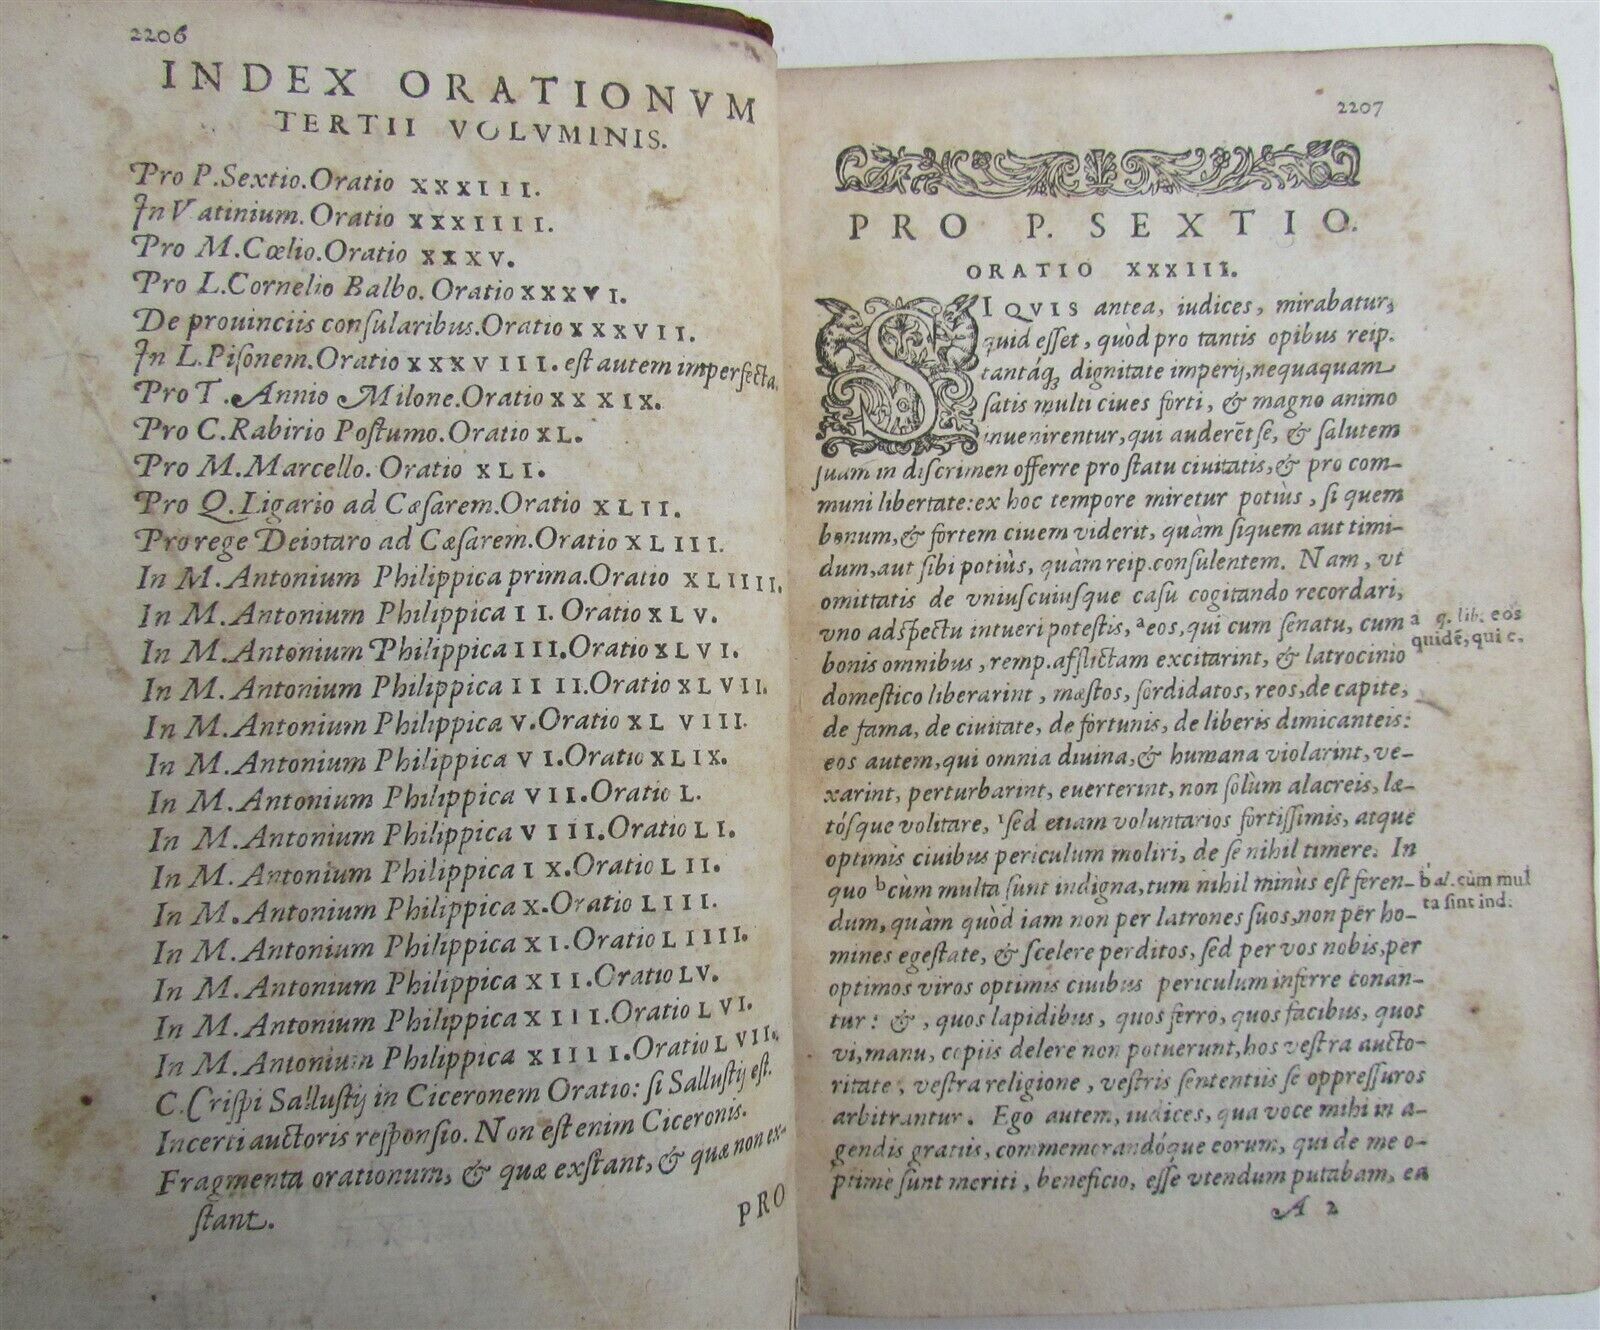 2206
INDEX ORATIONVM
TERTII VOLVMINIS.
Pro P.Sextio.Oratio XXXIII.
In Vatinium.Oratio XXXIIII.
Pro M.Cœlio.Oratio XXXV.
Pro L.Cornelio Balbo.Oratio XXXVI.
De prouinciis conſularibus.Oratio XXXVII.
In L.Piſonem.Oratio XXXVIII. eſt autem imperfecta.
Pro T.Annio Milone.Oratio XXXIX.
Pro C.Rabirio Poſtumo.Oratio XL.
Pro M.Marcello.Oratio XLI.
Pro Q.Ligario ad Cæſarem.Oratio XLII.
Pro rege Deiotaro ad Cæſarem.Oratio XLIII.
In M.Antonium Philippica prima.Oratio XLIIII.
In M.Antonium Philippica II.Oratio XLV.
In M.Antonium Philippica III.Oratio XLVI.
In M.Antonium Philippica IIII.Oratio XLVII.
In M.Antonium Philippica V.Oratio XLVIII.
In M.Antonium Philippica VI.Oratio XLIX.
In M.Antonium Philippica VII.Oratio L.
In M.Antonium Philippica VIII.Oratio LI.
In M.Antonium Philippica IX.Oratio LII.
In M.Antonium Philippica X.Oratio LIII.
In M.Antonium Philippica XI.Oratio LIIII.
In M.Antonium Philippica XII.Oratio LV.
In M.Antonium Philippica XIII.Oratio LVI.
In M.Antonium Philippica XIIII.Oratio LVII.
C.Criſpi Salluſtij in Ciceronem Oratio: ſi Salluſtij eſt.
Incerti auctoris reſponſio. Non eſt enim Ciceronis.
Fragmenta orationum, & quæ exſtant, & quæ non ex-
ſtant.
PRO
2207
PRO P. SEXTIO.
ORATIO XXXIII.
SIQVIS antea, iudices, mirabatur,
quid eſſet, quòd pro tantis opibus reip.
tantáq; dignitate imperij, nequaquam
ſatis multi ciues forti, & magno animo
inuenirentur, qui auderẽt ſe, & ſalutem
ſuam in diſcrimen offerre pro ſtatu ciuitatis, & pro com-
muni libertate: ex hoc tempore miretur potiùs, ſi quem
bonum, & fortem ciuem viderit, quàm ſiquem aut timi-
dum, aut ſibi potiùs, quàm reip. conſulentem. Nam, vt
omittatis de vniuſcuiuſque caſu cogitando recordari,
vno adſpectu intueri poteſtis, ᵃeos, qui cum ſenatu, cum
bonis omnibus, remp. afflictam excitarint, & latrocinio
domeſtico liberarint, mæſtos, ſordidatos, reos, de capite,
de fama, de ciuitate, de fortunis, de liberis dimicanteis:
eos autem, qui omnia diuina, & humana violarint, ve-
xarint, perturbarint, euerterint, non ſolùm alacreis, læ-
tóſque volitare, ſed etiam voluntarios fortiſſimis, atque
optimis ciuibus periculum moliri, de ſe nihil timere. In
quo ᵇcùm multa ſunt indigna, tum nihil minùs eſt feren-
dum, quàm quòd iam non per latrones ſuos, non per ho-
mines egeſtate, & ſcelere perditos, ſed per vos nobis, per
optimos viros optimis ciuibus periculum inferre conan-
tur: &, quos lapidibus, quos ferro, quos facibus, quos
vi, manu, copiis delere non potuerunt, hos veſtra aucto-
ritate, veſtra religione, veſtris ſententiis ſe oppreſſuros
arbitrantur. Ego autem, iudices, qua voce mihi in a-
gendis gratiis, commemorandóque eorum, qui de me o-
ptimè ſunt meriti, beneficio, eſſe vtendum putabam, ea
A 2
a q. lib. eos
quidẽ, qui c.
b al. cùm mul
ta ſint ind.